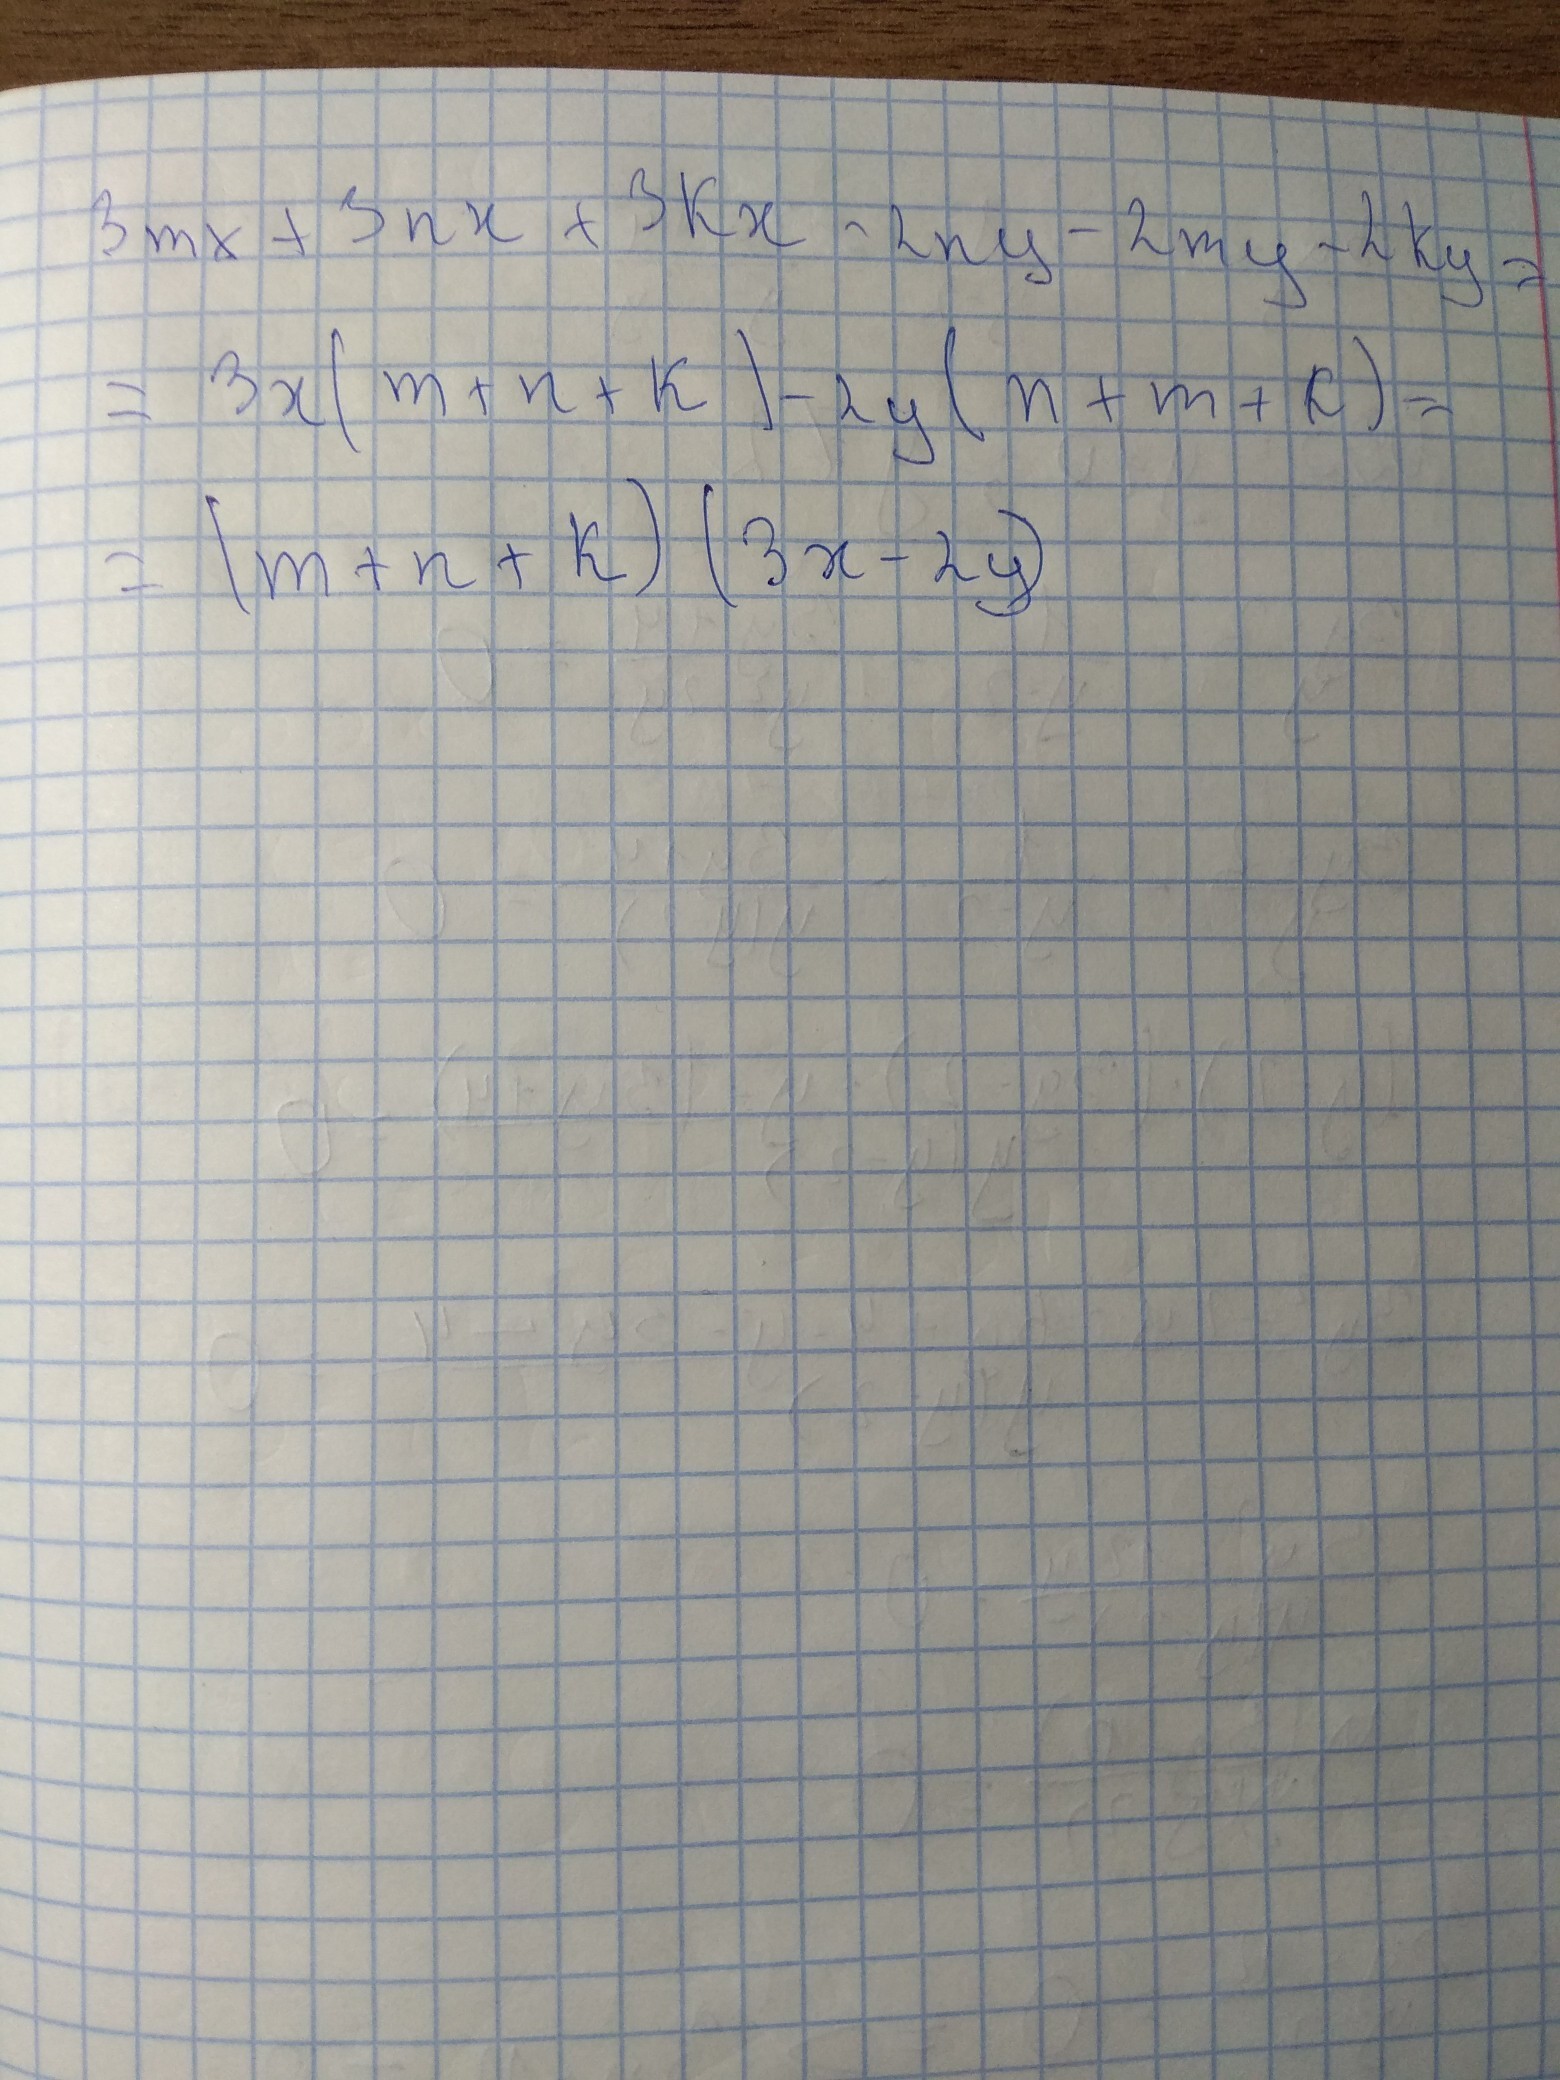 3mx + 3nx + 3kx - 2ny - 2my - 2ky =
= 3x(m+n+k) - 2y(n+m+k) =
= (m+n+k)(3x-2y)